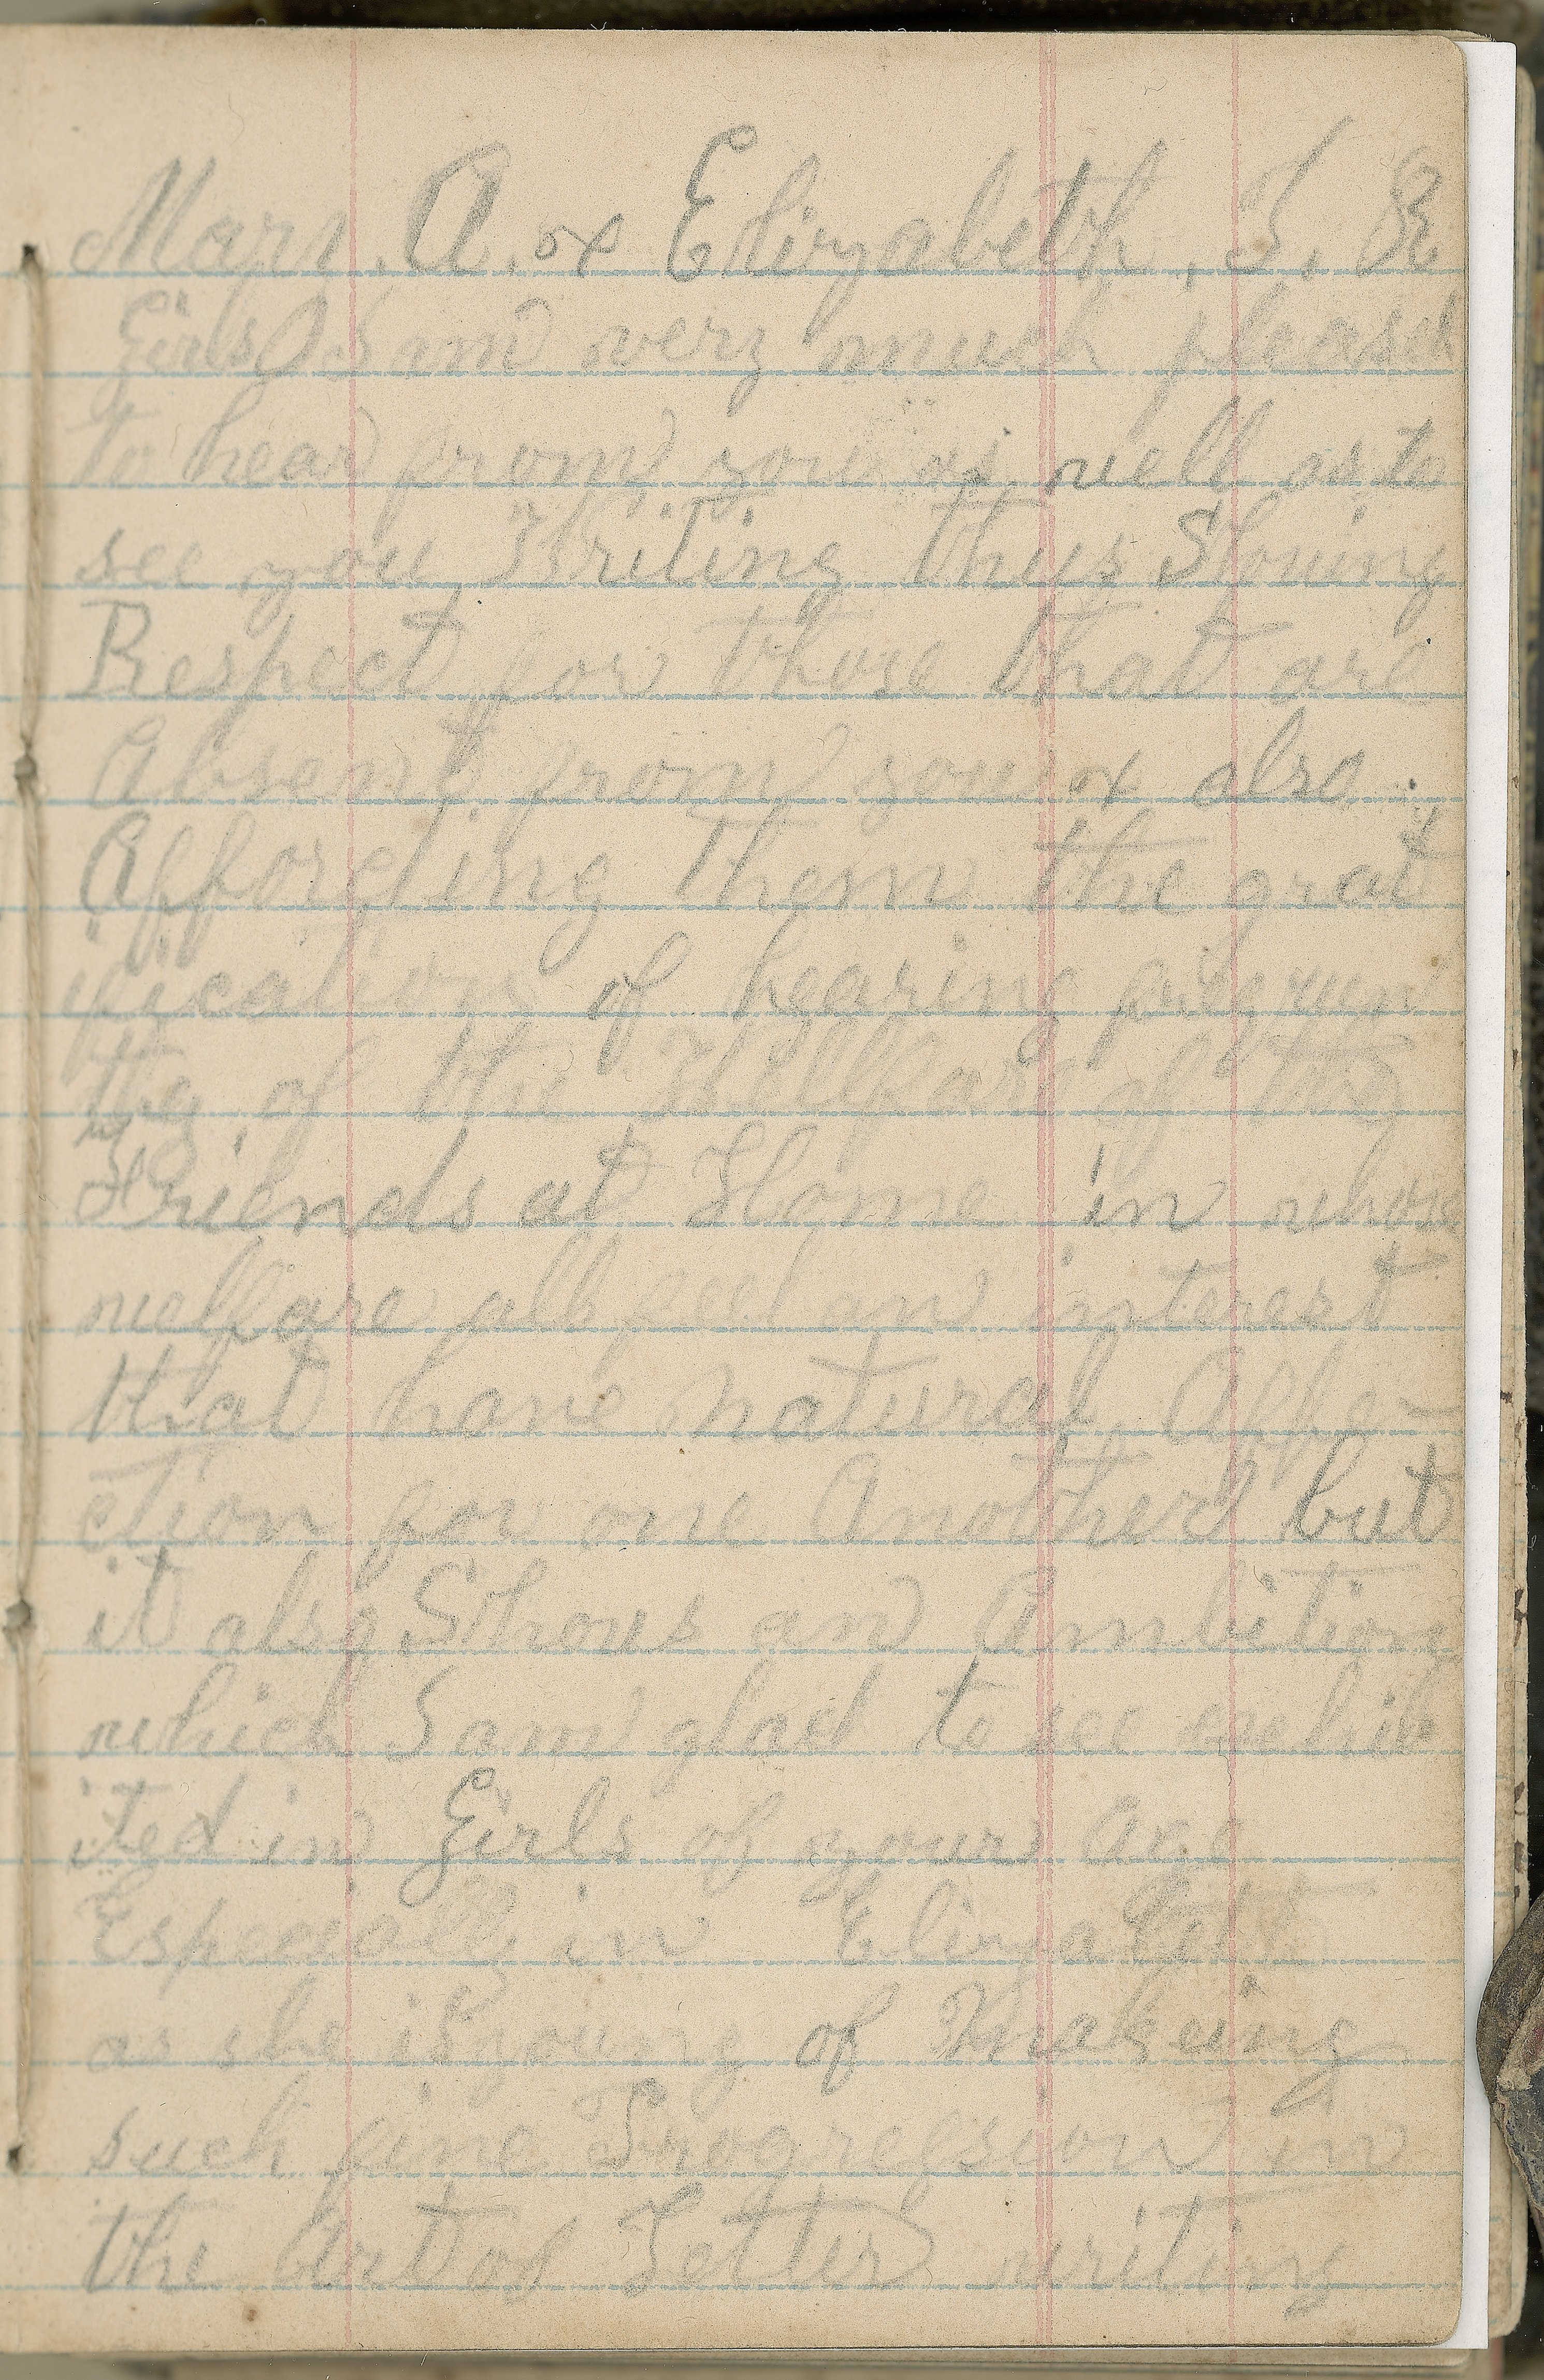 Mary. A. & Elizabeth. S. R
Girls I am very much pleased
to hear from you as well as to
see you Writing thus Showing
Respect for those that are
Absent from you & also
Affording them the grat
ification of hearing frequent
tly, of the Wellfare of the
Friends at Home in whose
welfare all feel an interest
that have natural Affe-
ction for one Another but
it also Shows an Ambition
which I am glad to see exhib
ited in Girls of your Age
Especially in Elizabeth
as she is young of Makeing
such fine Progression in
the Art of Letter writing